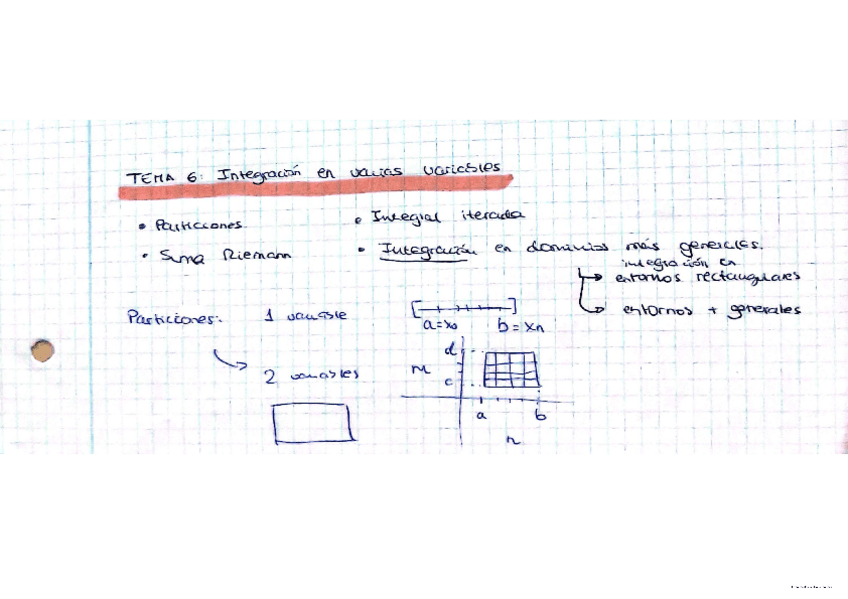 TEMA 6: Integración en varias variables
• Particiones
• Integral iterada
• Suma Riemann
• Integración en dominios más generales.
integración en
entornos rectangulares
entornos + generales
Particiones: 1 variable
a=x₀ b=xn
2 variables
d
m
c
a b
n